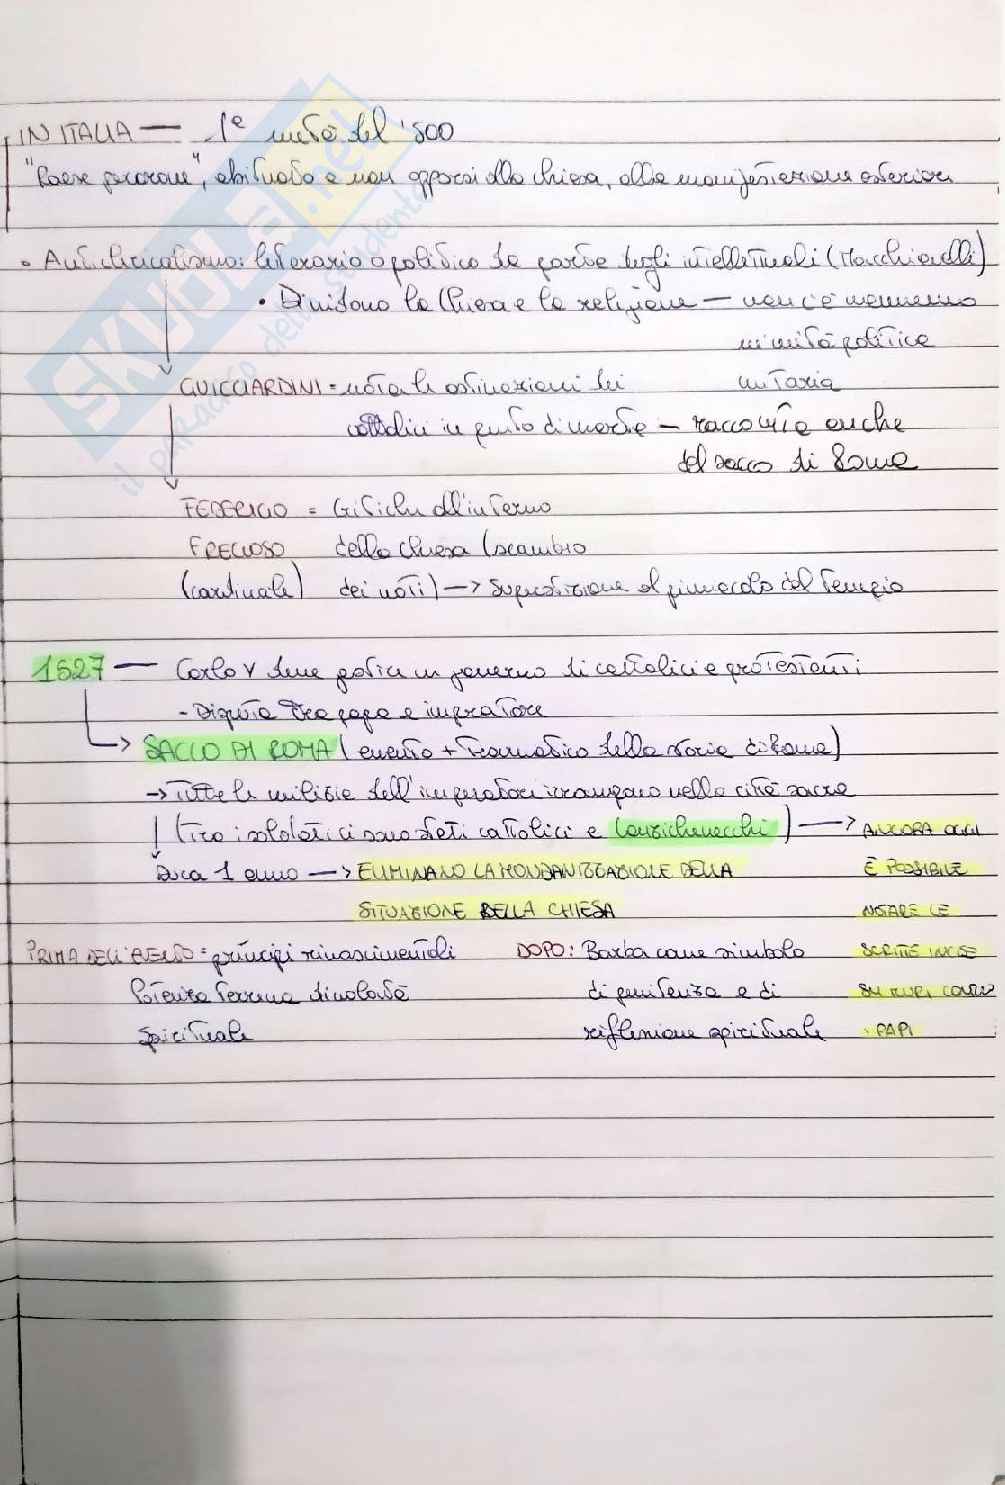 IN ITALIA — 1° metà del '500
"Paese pecorone", abituato a non opporsi alla chiesa, alle manifestazione esteriori
• Anticlericalismo: letterario o politico da parte degli intellettuali (Macchiavelli)
• Dividono la Chiesa e la religione — non c'è nemmeno
un'unità politica
unitaria
GUICCIARDINI = nota le ostinazioni dei
cattolici in punto di morte — racconta anche
del sacco di Roma
FEDERICO = critiche all'interno
FREGOSO della chiesa (scambio
(cardinale) dei voti) → superstizione al pinnacolo del Tempio
1527 — Carlo V deve patica un governo di cattolici e protestanti
- Disputa tra papa e impratore
→ SACCO DI ROMA (evento + traumatico della storia di Roma)
→ Tutte le milizie dell'imperatori irrompono nella città sacra
(tra i soldati ci sono stati cattolici e Lanzichenecchi) → ANCORA OGGI
Dura 1 anno → ELIMINANO LA MONDANIZZAZIONE DELLA È POSSIBILE
SITUAZIONE DELLA CHIESA NOTARE LE
PRIMA DELL'EVENTO = principi rinascimentali DOPO: Barba come simbolo SCRITTE INCISE
Potenza terrena di penitenza e di SU MURI CONTRO
spirituale riflessione spirituale I PAPI
SKUOLA.net
il paradiso dello studente